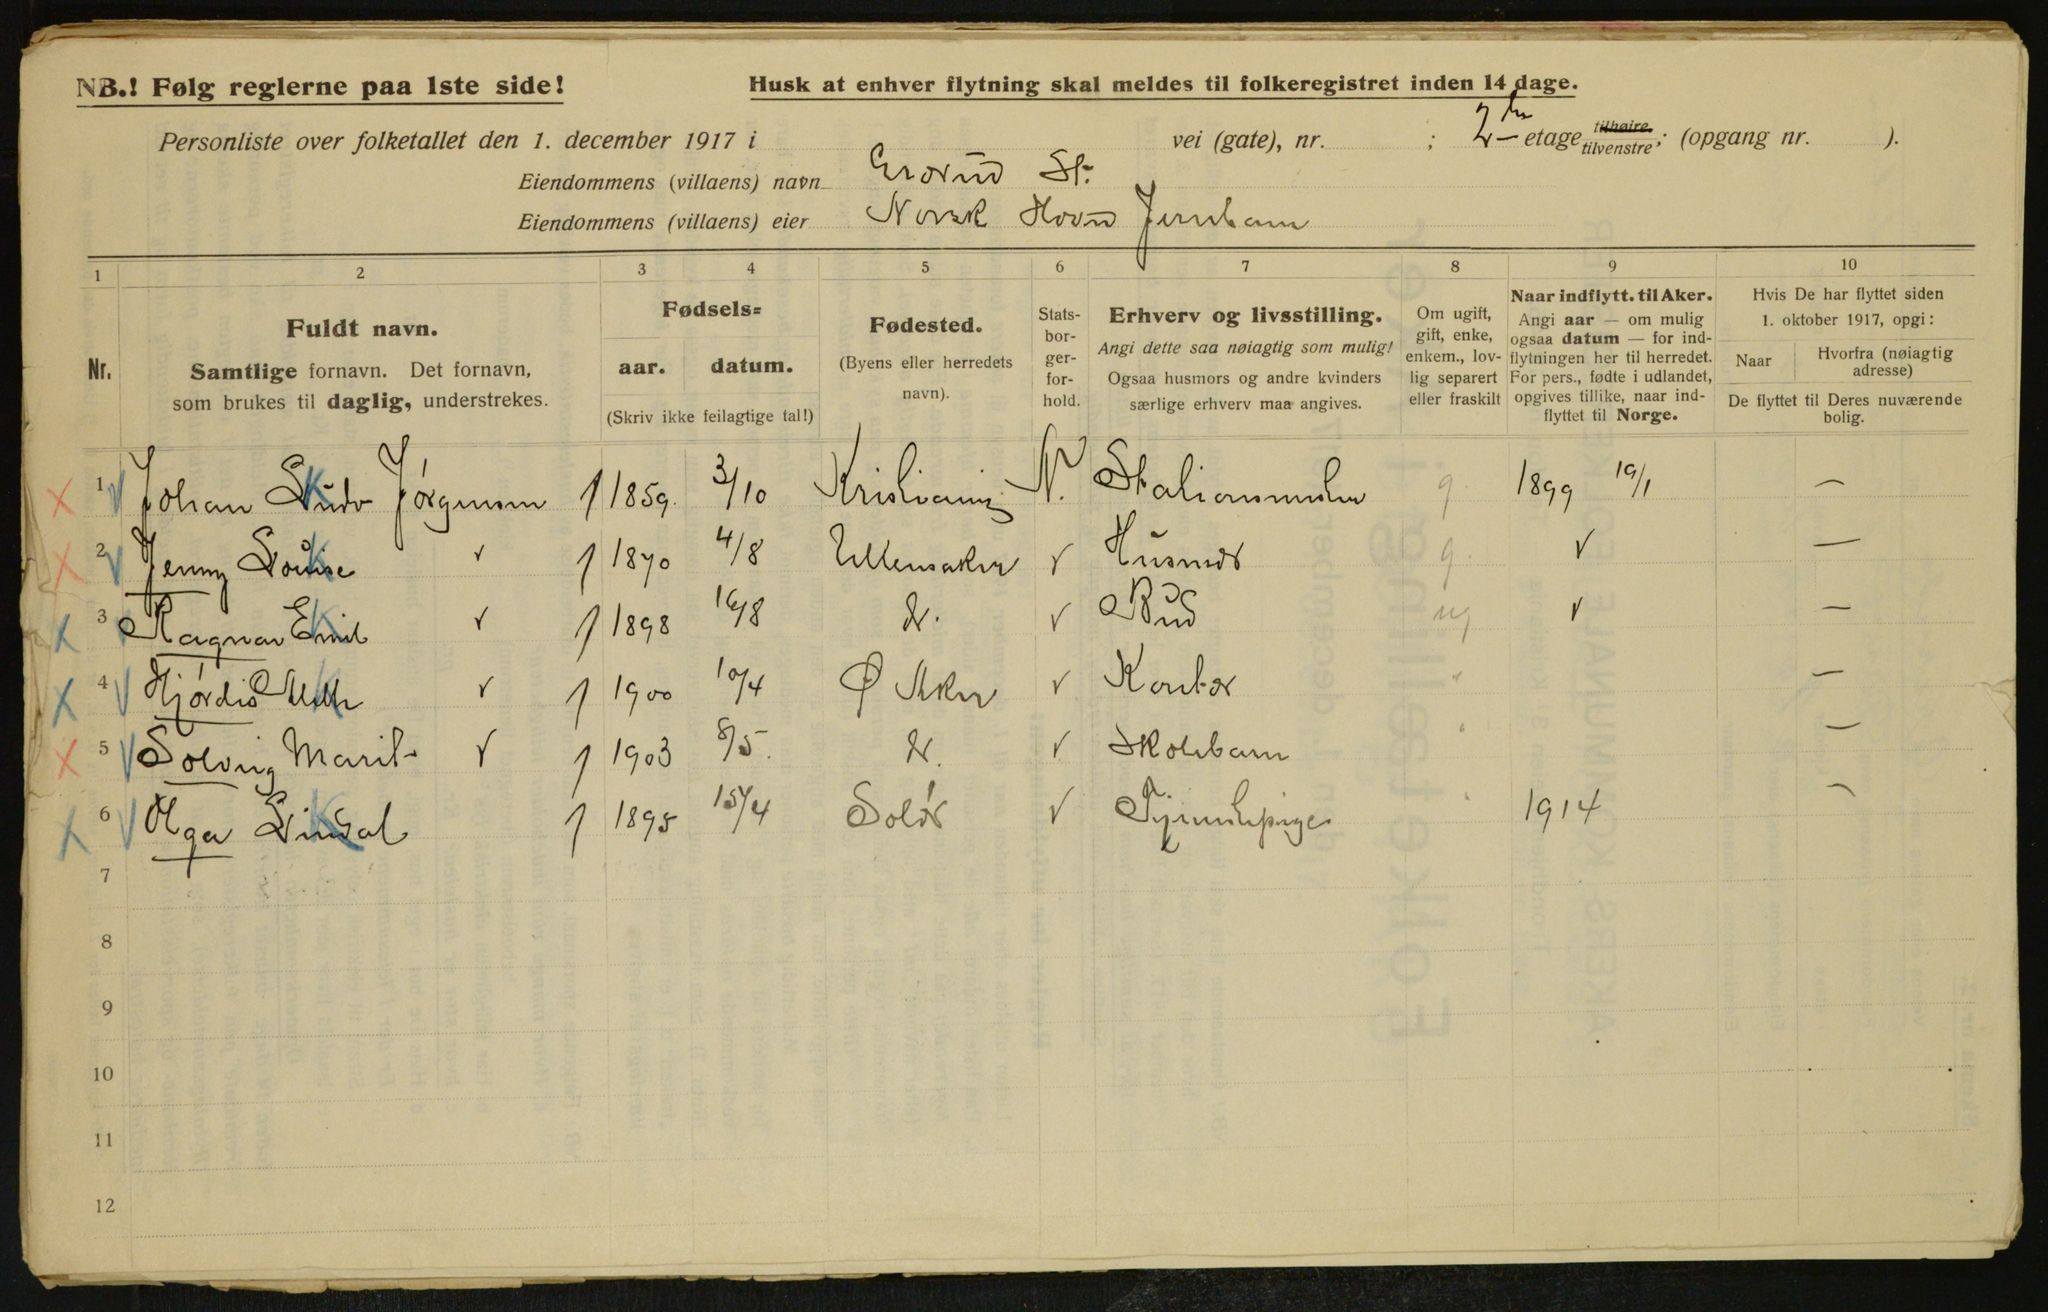 NB.! Følg reglerne paa 1ste side!
Husk at enhver flytning skal meldes til folkeregistret inden 14 dage.
Personliste over folketallet den 1. december 1917 i vei (gate), nr. ; 2- etage tilhøire. tilvenstre; (opgang nr. ).
Eiendommens (villaens) navn Grorud St.
Eiendommens (villaens) eier Norsk Hoved Jernbane
1 2 3 4 5 6 7 8 9 10
Nr.
Fuldt navn.
Samtlige fornavn. Det fornavn,
som brukes til daglig, understrekes.
Fødsels=
aar. datum.
(Skriv ikke feilagtige tal!)
Fødested.
(Byens eller herredets
navn).
Stats-
bor-
ger-
for-
hold.
Erhverv og livsstilling.
Angi dette saa nøiagtig som mulig!
Ogsaa husmors og andre kvinders
særlige erhverv maa angives.
Om ugift,
gift, enke,
enkem., lov-
lig separert
eller fraskilt
Naar indflytt. til Aker.
Angi aar — om mulig
ogsaa datum — for ind-
flytningen her til herredet.
For pers., fødte i udlandet,
opgives tillike, naar ind-
flyttet til Norge.
Hvis De har flyttet siden
1. oktober 1917, opgi:
Naar
Hvorfra (nøiagtig
adresse)
De flyttet til Deres nuværende
bolig.
1 Johan Ludv Jørgensen 1859. 3/10 Kristiania N. Stationsmester g. 1899 19/1 —
2 Jenny Louise 1870 4/8 Ullensaker Husmor g. —
3 Ragnar Emil 1898 16/8 Bud ug —
4 Hjørdis 1900 10/4 Ø Aker Kontor " —
5 Solveig Marit 1903 8/5. Skolebarn " —
6 Olga Lindal 1895 15/4 Solør Tjenestepige " 1914 —
7
8
9
10
11
12